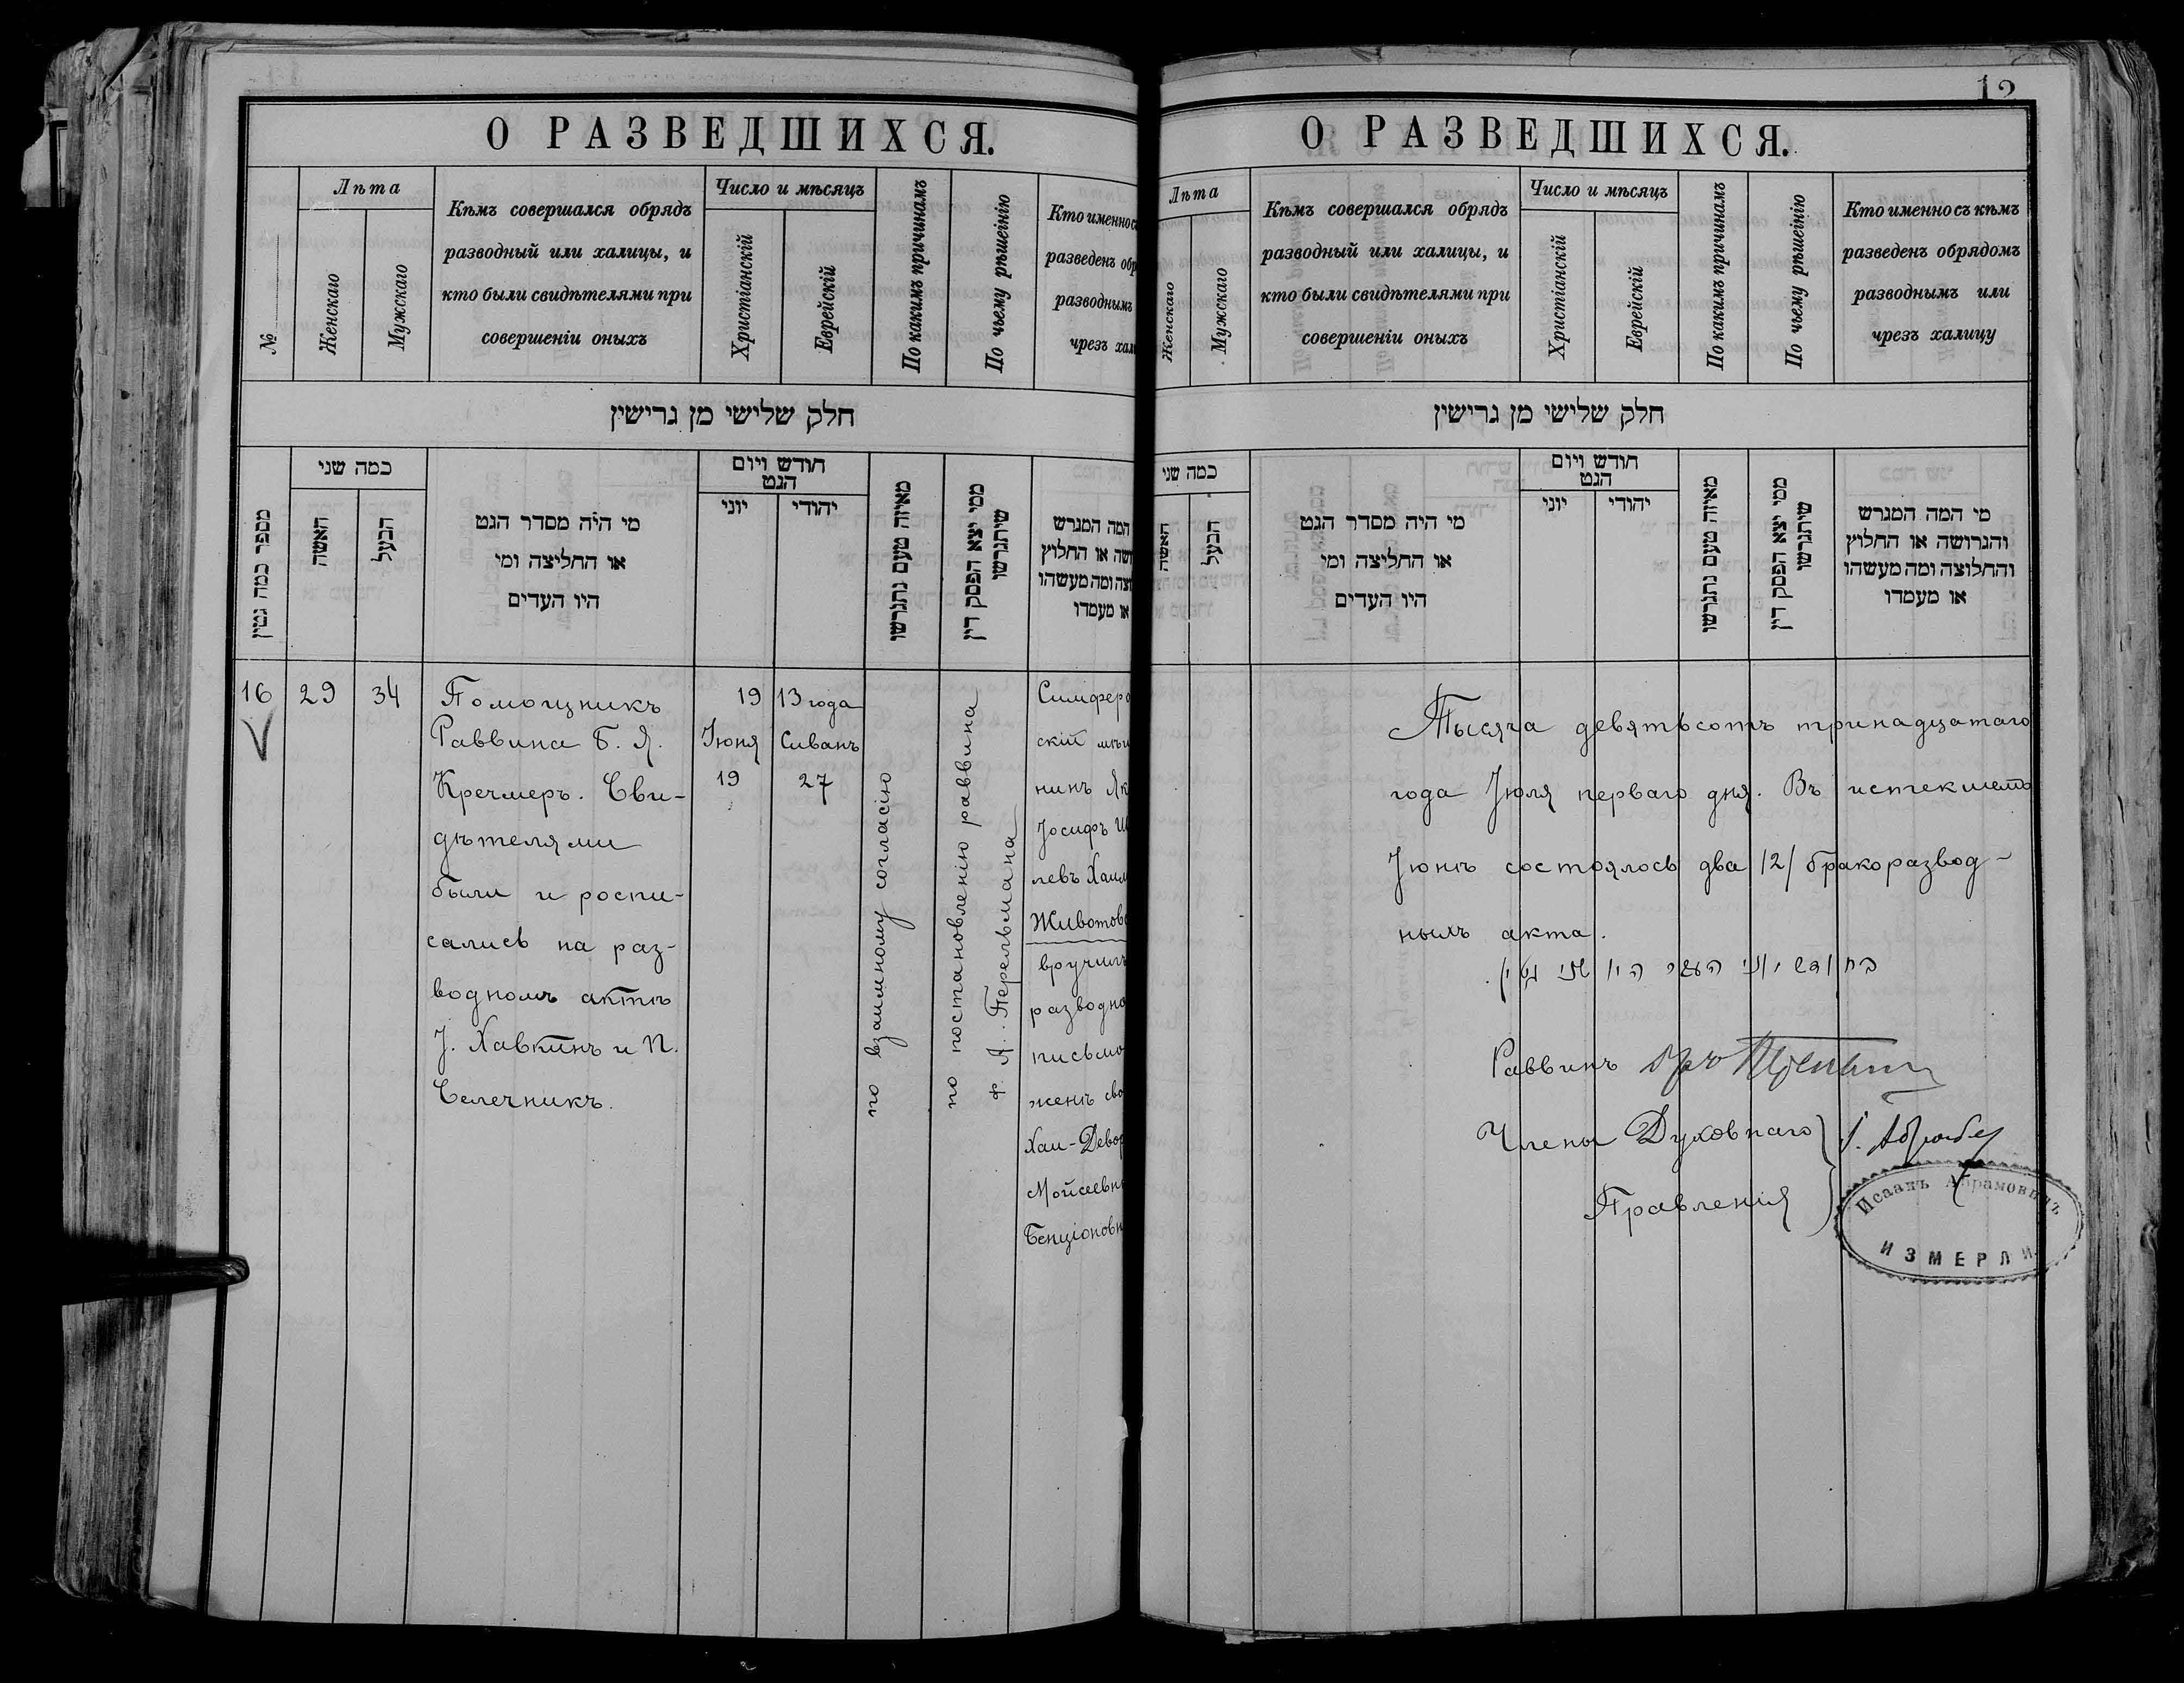 О РАЗВЕДШИХСЯ.
№
Лѣта
Женскаго
Мужскаго
Кѣмъ совершался обрядъ
разводный или халицы, и
кто были свидѣтелями при
совершеніи оныхъ
Число и мѣсяцъ
Христіанскій
Еврейскій
По какимъ причинамъ
По чьему рѣшенію
Кто именно с
разведенъ обр
разводнымъ
чрезъ хал
חלק שלישי מן גרישין
מספר כמה גטין
כמה שני
האשה
הבעל
מי היה מסדר הגט
או החליצה ומי
היו העדים
חודש ויום
הגט
יוני
יהודי
מאיזה טעם נתגרשו
ממי יצא הפסק דין
שיתגרשו
המה המגרש
ושה או החלוץ
וצה ומה מעשהו
או מעמדו
16
29
34
Помощникъ
Раввина Б. Я.
Кречмеръ. Сви-
дѣтелями
были и роспи-
сались на раз-
водномъ актѣ
І. Хавкинъ и П.
Селечникъ.
19 13 года
Іюня Сиванъ
19 27
по взаимному согласію
по постановленію раввина
Ф. Я. Перельмана
Симферо
скій мѣщ
нинъ Як
Іосифъ Ш
левъ Хаим
Животовс
вручилъ
разводно
письмо
женѣ сво
Хаи-Двор
Мойсеевн
Бенціоновн
12
О РАЗВЕДШИХСЯ.
Лѣта
Женскаго
Мужскаго
Кѣмъ совершался обрядъ
разводный или халицы, и
кто были свидѣтелями при
совершеніи оныхъ
Число и мѣсяцъ
Христіанскій
Еврейскій
По какимъ причинамъ
По чьему рѣшенію
Кто именно съ кѣмъ
разведенъ обрядомъ
разводнымъ или
чрезъ халицу
חלק שלישי מן גרישין
כמה שני
האשה
הבעל
מי היה מסדר הגט
או החליצה ומי
היו העדים
חודש ויום
הגט
יוני
יהודי
מאיזה טעם נתגרשו
ממי יצא הפסק דין
שיתגרשו
מי המה המגרש
והגרושה או החלוץ
והחלוצה ומה מעשהו
או מעמדו
Тысяча девятьсотъ тринадцатаго
года Іюля перваго дня. Въ истекшемъ
Іюнѣ состоялось два /2/ бракоразвод-
ныхъ акта.
בחודש יוני היו שני גטין.
Раввинъ
Члены Духовнаго
Правленія
Исаакъ Абрамовичъ
ИЗМЕРЛИ